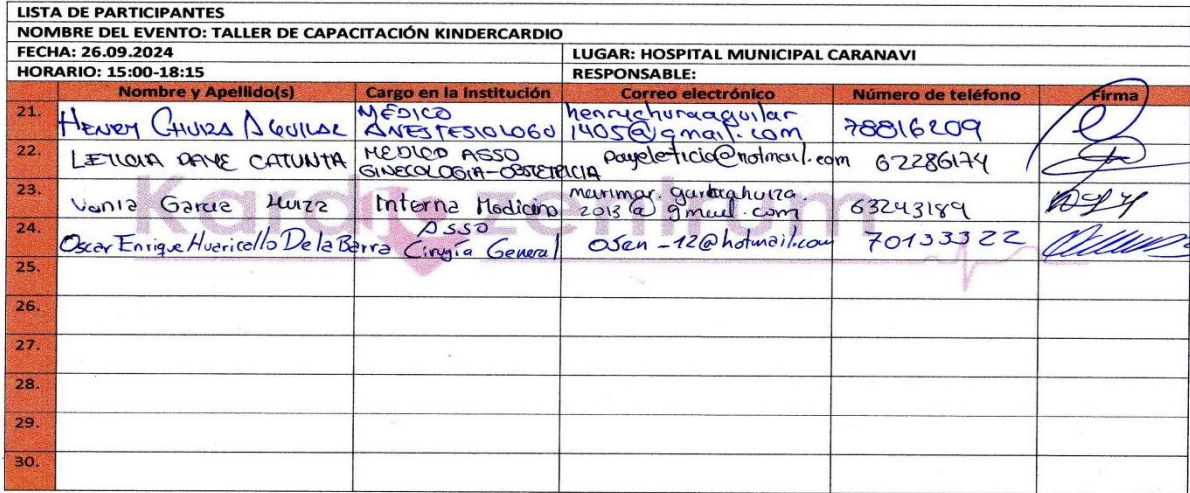 LISTA DE PARTICIPANTES
NOMBRE DEL EVENTO: TALLER DE CAPACITACIÓN KINDERCARDIO
FECHA: 26.09.2024 LUGAR: HOSPITAL MUNICIPAL CARANAVI
HORARIO: 15:00-18:15 RESPONSABLE:
Nombre y Apellido(s) Cargo en la Institución Correo electrónico Número de teléfono Firma
21. HENRY CHURA AGUILAR MÉDICO ANESTESIOLOGO henrychuraaguilar 1405@gmail.com 78816209
22. LETICIA PAYE CATUNTA MEDICO ASSO GINECOLOGIA-OBSTETRICIA payeleticia@hotmail.com 62286174
23. Vania Garcia Huiza Interna Medicina marimar.garciahuiza. 2013@gmail.com 63243189
24. Oscar Enrique Huaricallo De la Barra ASSO Cirugía General osen-12@hotmail.com 70133322
Kardiozentrum
25.
26.
27.
28.
29.
30.